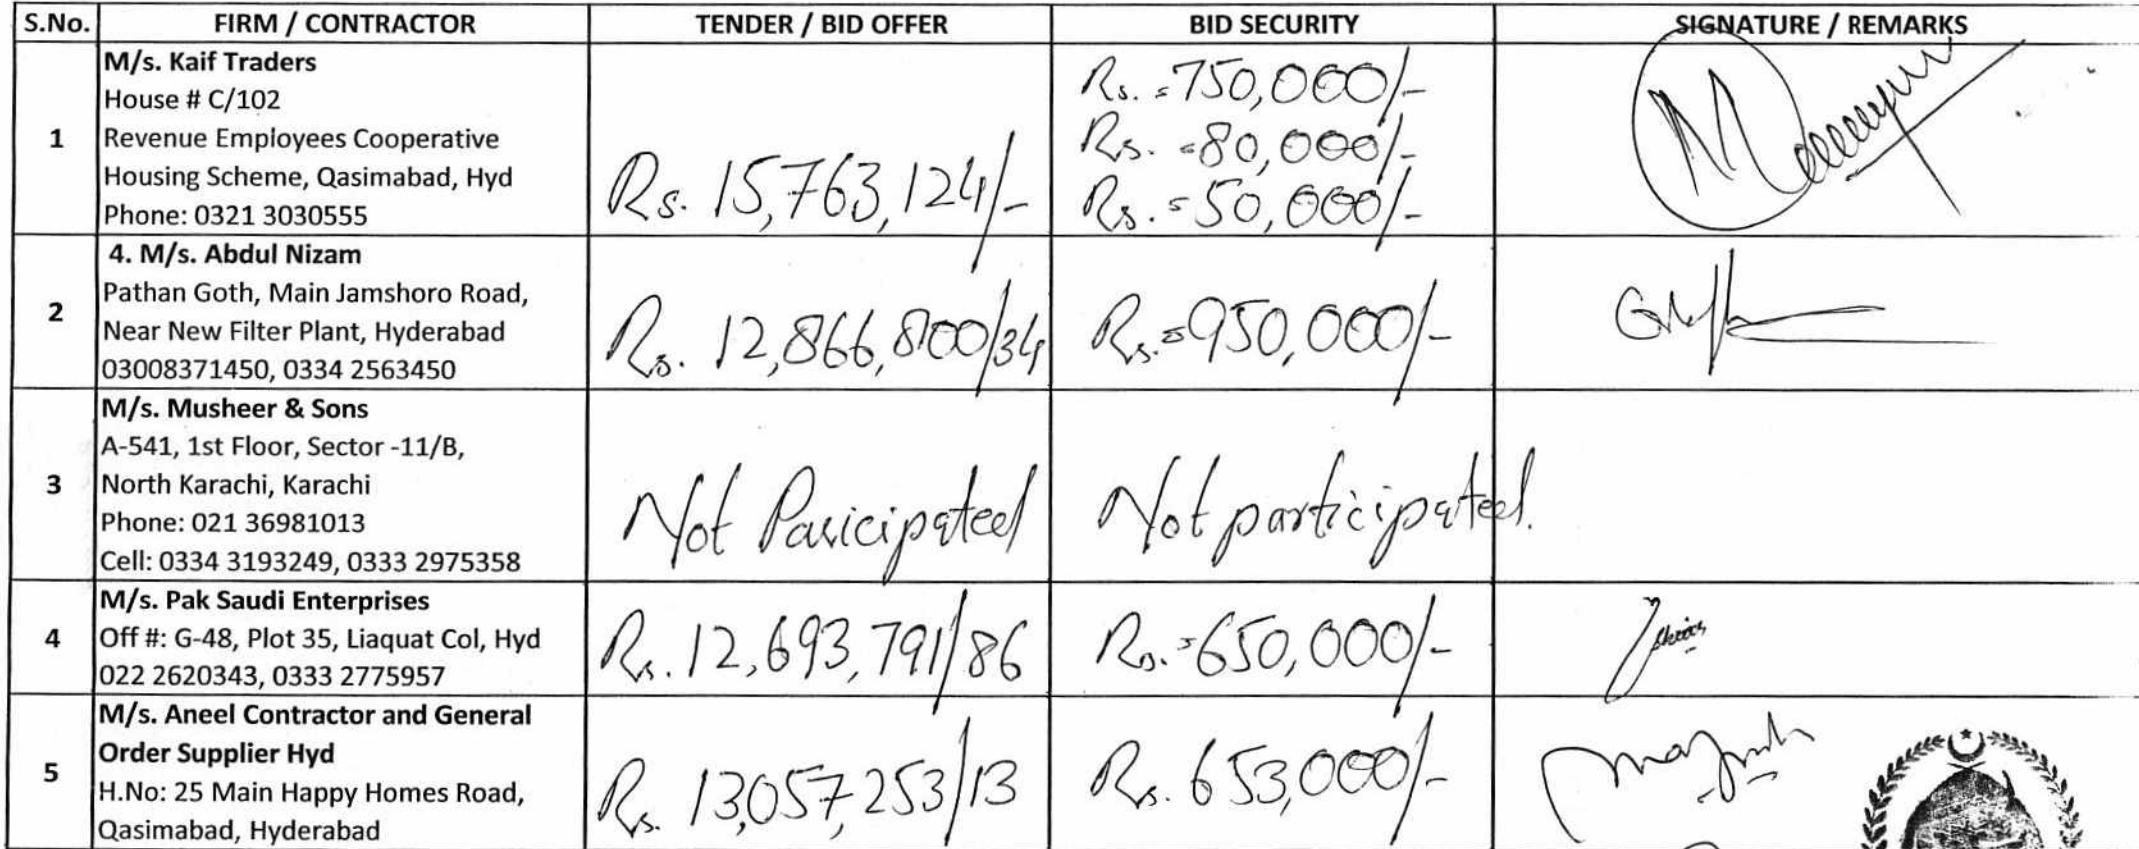 S.No. FIRM / CONTRACTOR TENDER / BID OFFER BID SECURITY SIGNATURE / REMARKS
1
M/s. Kaif Traders
House # C/102
Revenue Employees Cooperative
Housing Scheme, Qasimabad, Hyd
Phone: 0321 3030555
Rs. 15,763,124/-
Rs. =750,000/-
Rs. =80,000/-
Rs. =50,000/-
2
4. M/s. Abdul Nizam
Pathan Goth, Main Jamshoro Road,
Near New Filter Plant, Hyderabad
03008371450, 0334 2563450
Rs. 12,866,800/34
Rs.=950,000/-
3
M/s. Musheer & Sons
A-541, 1st Floor, Sector -11/B,
North Karachi, Karachi
Phone: 021 36981013
Cell: 0334 3193249, 0333 2975358
Not Paricipated
Not participated.
4
M/s. Pak Saudi Enterprises
Off #: G-48, Plot 35, Liaquat Col, Hyd
022 2620343, 0333 2775957
Rs. 12,693,791/86
Rs.=650,000/-
5
M/s. Aneel Contractor and General
Order Supplier Hyd
H.No: 25 Main Happy Homes Road,
Qasimabad, Hyderabad
Rs. 13,057,253/13
Rs. 653,000/-